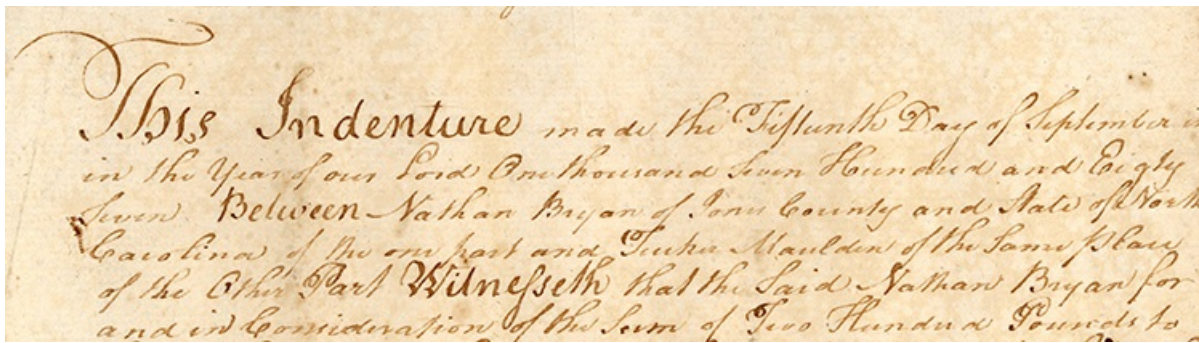 This Indenture made the Fifteenth Day of September
in the Year of our Lord One thousand Seven Hundred and Eighty
Seven Between Nathan Bryan of Jones County and State of North
Carolina of the one part and Tucker Maulden of the Same place
of the Other Part Witnesseth that the Said Nathan Bryan for
and in Consideration of the Sum of Two Hundred Pounds to